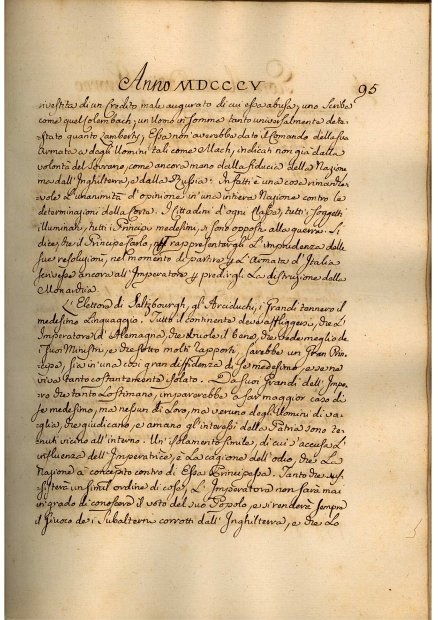 Anno MDCCCV
95
rivestita di un Credito male augurato di cui essa abusa; uno Scriba
come quel Colembach; un Uomo in somma tanto universalmente dete-
stato quanto Lamberty, Essa non averebbe dato il Comando della sua
Armata a degli Uomini tali come Mach, indicati non già dalla
volontà del Sovrano, come ancora meno dalla fiducia della Nazione
ma dall' Inghilterra, e dalla Russia: In fatti è una cosa rimarche-
vole L'unanimità d'opinione in una intiera Nazione contro le
determinazioni della Corte. I Cittadini d'ogni Classe, tutti i Soggetti
illuminati, tutti i Principi medesimi, si sono opposti alla guerra. Si
dice, che il Principe Carlo, rappresentargli L'imprudenza delle
sue resoluzioni, nel momento di partire per L'Armata d'Italia
scrivesse ancora all' Imperatore per predirgli La distruzione della
Monarchia.
L' Elettore di Saltzbourgh, gli Arciduchi, i Grandi tennero il
medesimo Linguaggio. Tutto il Continente deve affliggersi, che L'
Imperatore d'Alemagna, che vuole il bene, che vede meglio de
i suoi Ministri, e che sotto molti rapporti, sarebbe un Gran Prin-
cipe, sia in una così gran diffidenza di se medesimo, e se ne
viva tanto costantemente isolato. Da suoi Grandi dell' Impe-
ro che tanto Lo stimano, imparerebbe a far maggior caso di
se medesimo, ma nessun di Loro, ma veruno degli Uomini di va-
glia, che giudicano, e amano gl' interessi della Patria sono te-
nuti vicini all' interno. Un' isolamento simile, di cui s'accusa L'
influenza dell' Imperatrice, è La cagione dell' odio, che La
Nazione à concepito contro di Essa Principessa. Tanto che sus-
sisterà un simil ordine di cose, L' Imperatore non sarà mai
in grado di conoscere il voto del suo Popolo, e si renderà sempre
il giuoco de i Subalterni corrotti dall' Inghilterra, e che Lo